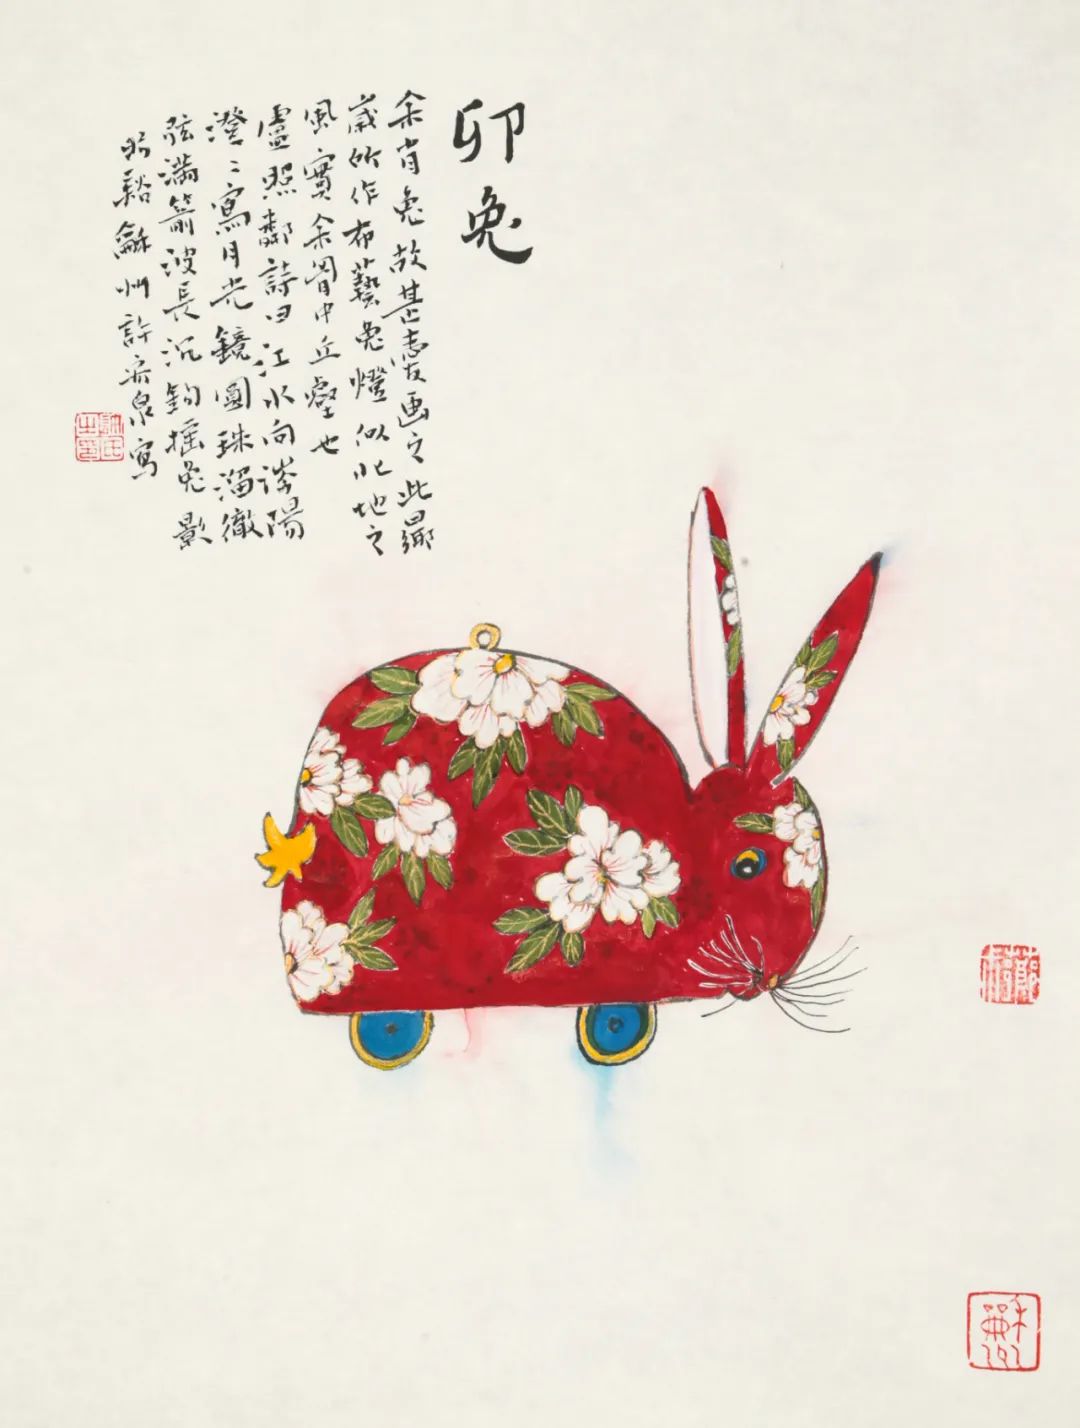 卯兔
余肖兔故甚愛画之此曏
歲所作布藝兔燈似北地之
風實余胷中丘壑也
盧照鄰詩曰江水向涔陽
澄〻寫月光鏡圓珠溜徹
弦滿箭波長沉鉤搖兔影
谿龢州許宏泉寫